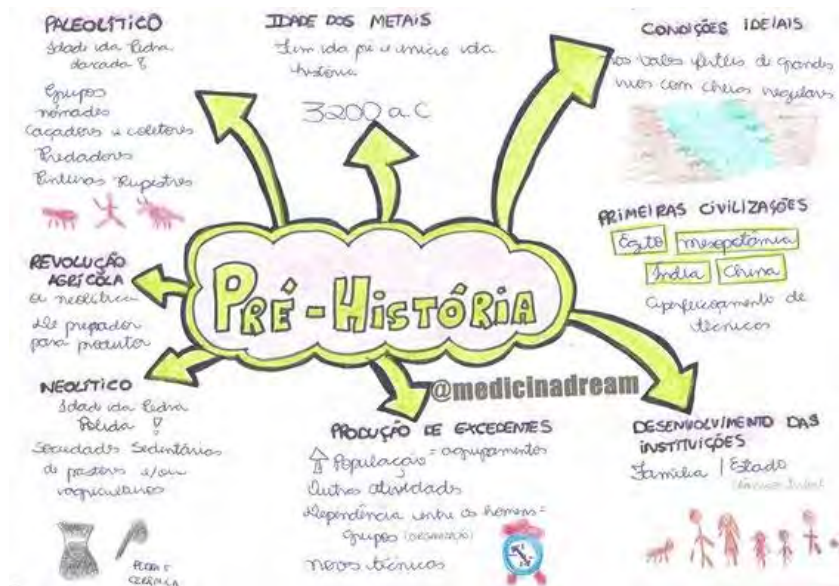 PALEOLÍTICO
Idade da Pedra
Grupos
nômades
Caçadores e coletores
Predadores
Pinturas Rupestres
IDADE DOS METAIS
Fim da pré e início da
história
3200 a.C
CONDIÇÕES IDEIAIS
nos vales férteis de grandes
rios com cheias regulares
PRIMEIRAS CIVILIZAÇÕES
Egito Mesopotâmia
Índia China
aperfeiçoamento de
técnicas
REVOLUÇÃO
AGRÍCOLA
ou neolítica
De
para produtor
PRÉ-HISTÓRIA
@medicinadream
NEOLÍTICO
Idade da Pedra
Polida !
Sociedades Sedentárias
de pastores e/ou
agricultores
PEDRA E
CERÂMICA
PRODUÇÃO DE EXCEDENTES
População = agrupamentos
Outras atividades
Dependência entre os homens =
Grupos (ORGANIZAÇÃO)
novas técnicas
DESENVOLVIMENTO DAS
INSTITUIÇÕES
Família | Estado